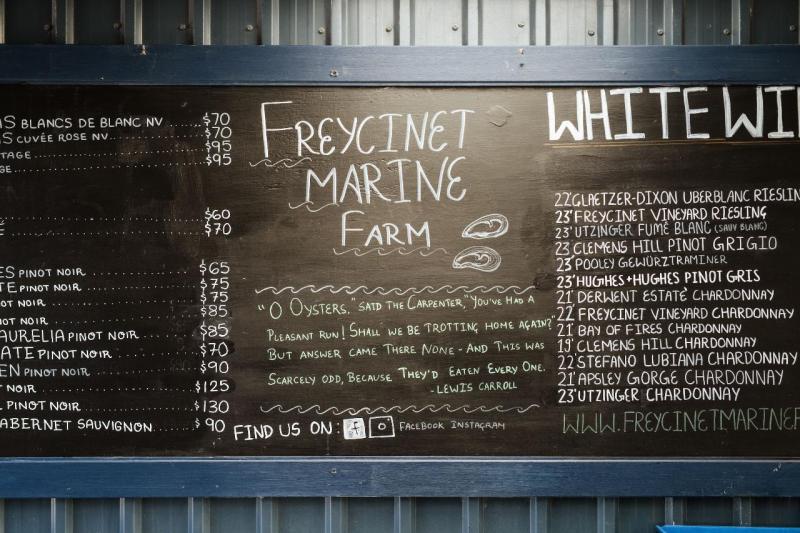 AS BLANCS DE BLANC NV ........ $70
S CUVÉE ROSE NV ........ $70
TAGE ........ $95
GE ........ $95
$60
$70
ES PINOT NOIR ........ $65
TE PINOT NOIR ........ $75
NOT NOIR ........ $75
NOT NOIR ........ $85
AURELIA PINOT NOIR ........ $85
ATE PINOT NOIR ........ $70
EN PINOT NOIR ........ $90
T NOIR ........ $125
PINOT NOIR ........ $130
CABERNET SAUVIGNON ........ $90
FREYCINET
MARINE
FARM
"O OYSTERS," SAID THE CARPENTER, "YOU'VE HAD A
PLEASANT RUN! SHALL WE BE TROTTING HOME AGAIN?"
BUT ANSWER CAME THERE NONE - AND THIS WAS
SCARCELY ODD, BECAUSE THEY'D EATEN EVERY ONE.
-LEWIS CARROLL
FIND US ON: f FACEBOOK INSTAGRAM
WHITE WI
22' GLAETZER-DIXON UBERBLANC RIESLIN
23' FREYCINET VINEYARD RIESLING
23' UTZINGER FUMÉ BLANC (SAUV BLANC)
23' CLEMENS HILL PINOT GRIGIO
23' POOLEY GEWÜRZTRAMINER
23' HUGHES+HUGHES PINOT GRIS
21' DERWENT ESTATE CHARDONNAY
22' FREYCINET VINEYARD CHARDONNAY
21' BAY OF FIRES CHARDONNAY
19' CLEMENS HILL CHARDONNAY
22' STEFANO LUBIANA CHARDONNAY
21' APSLEY GORGE CHARDONNAY
23' UTZINGER CHARDONNAY
WWW.FREYCINETMARINEF